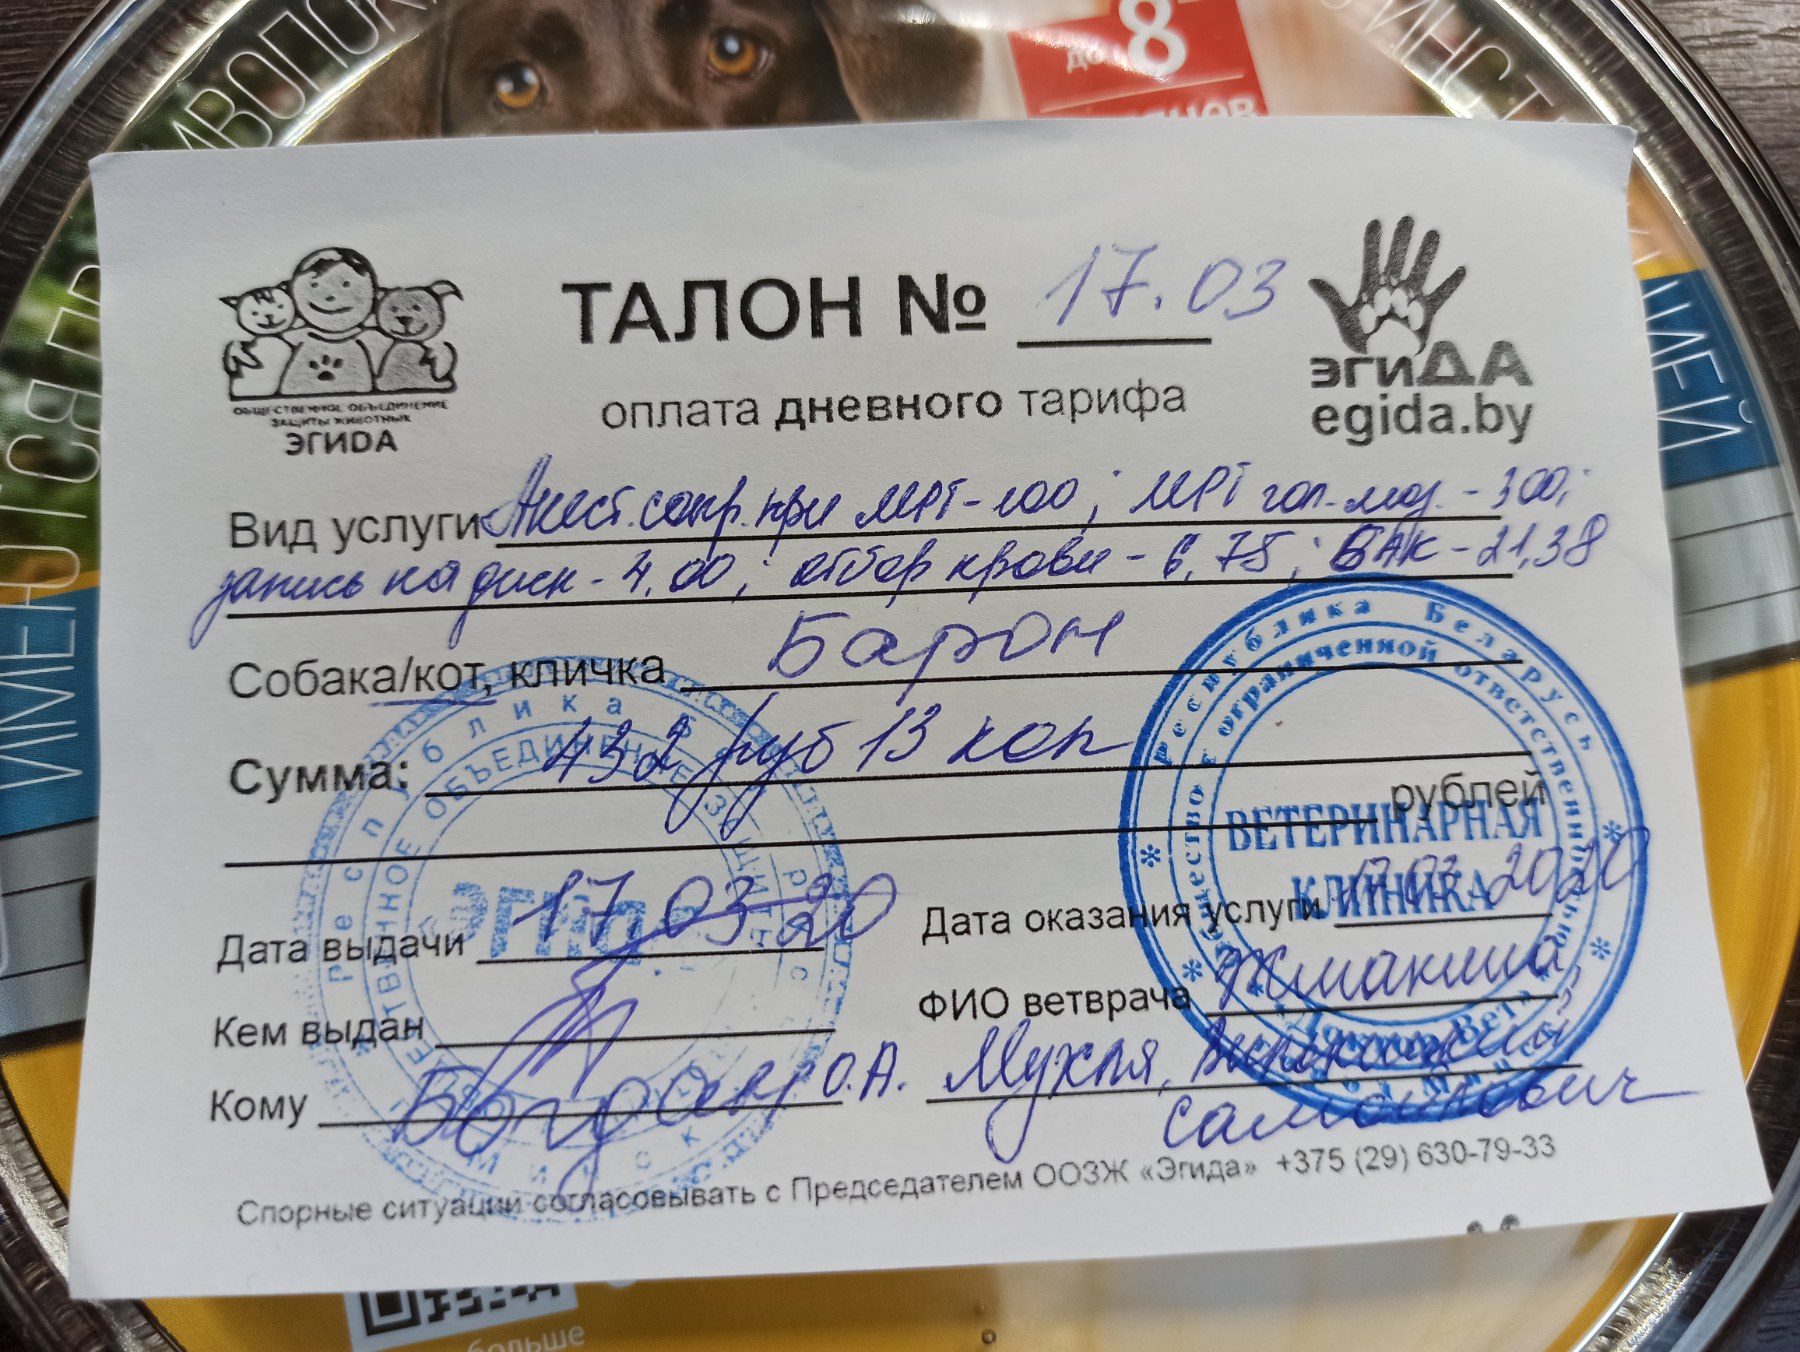 до 8
ТАЛОН № 17.03
оплата дневного тарифа
ОБЩЕСТВЕННОЕ ОБЪЕДИНЕНИЕ
ЗАЩИТЫ ЖИВОТНЫХ
ЭГИДА
эгиДА
egida.by
Вид услуги Анест. сопр. при МРТ-100; МРТ гол. моз. - 300;
запись на диск - 4,00; отбор крови - 6,75; БАК - 21,38
Собака/кот, кличка Барон
Сумма: 432 руб 13 коп
рублей
Дата выдачи 17.03.20
Дата оказания услуги 17.03.2020
Кем выдан
ФИО ветврача Жмакина
Кому О.А.
Мухля,
Самойлович
Спорные ситуации согласовывать с Председателем ООЗЖ «Эгида» +375 (29) 630-79-33
Республика Беларусь
ограниченной ответственностью
ВЕТЕРИНАРНАЯ
КЛИНИКА
Эгида
больше